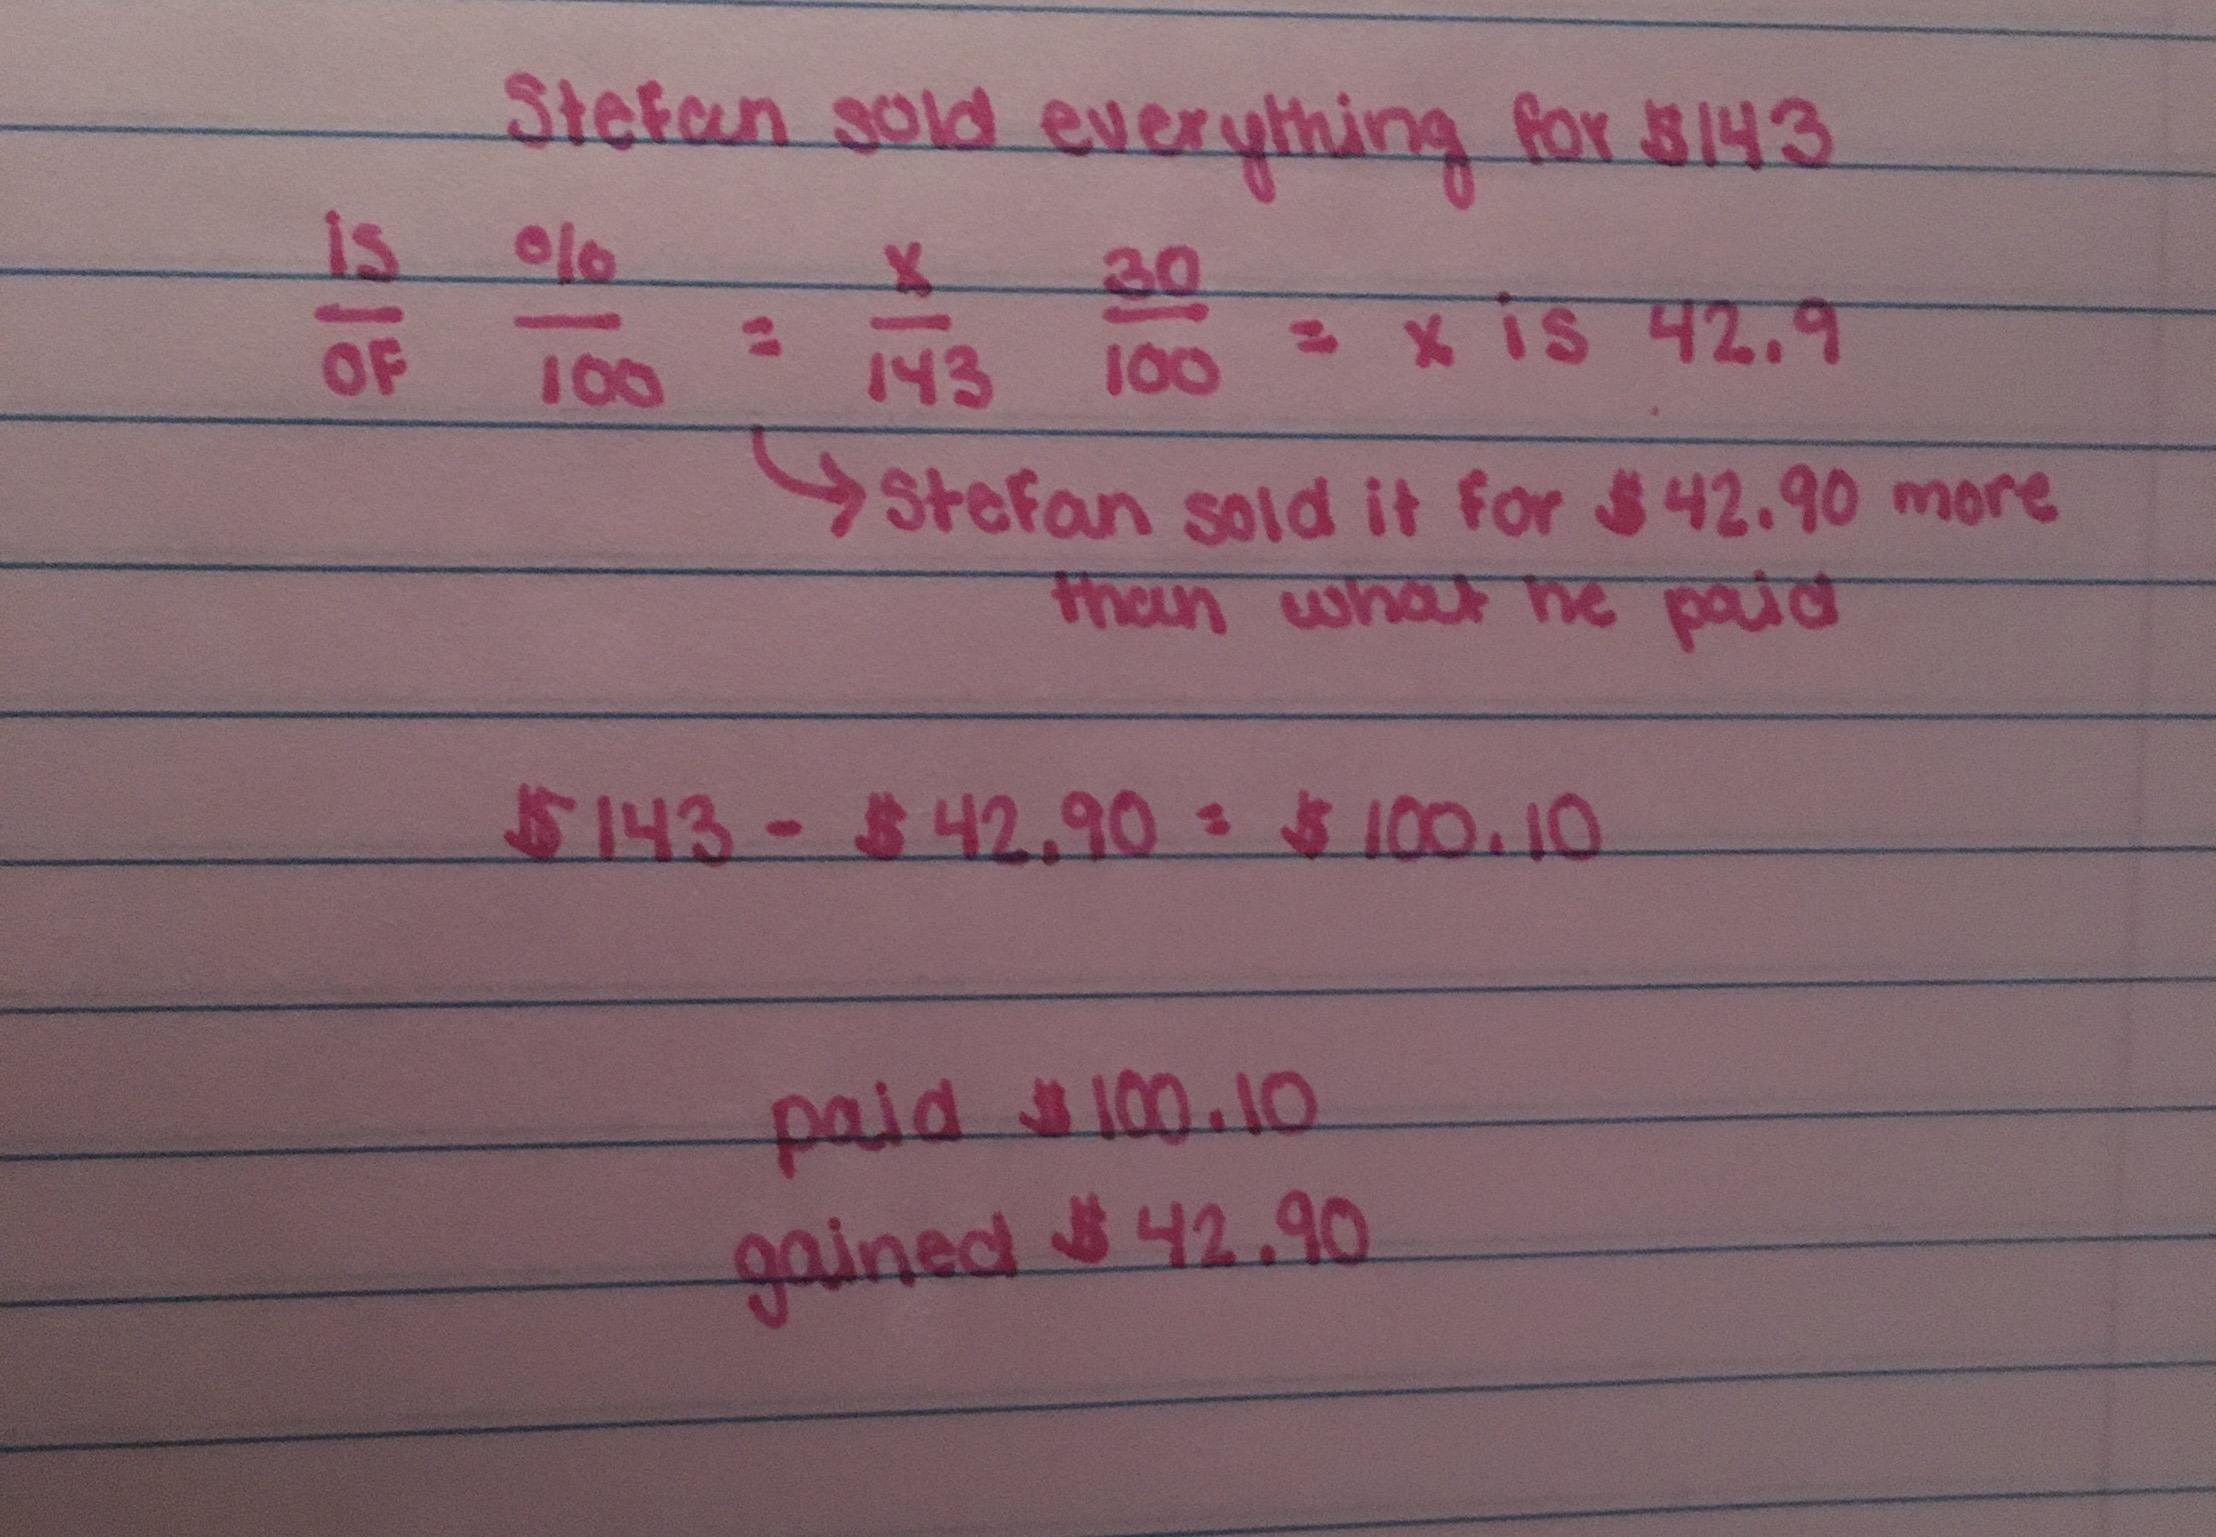 Stefan sold everything for $143
is/OF %/100 = x/143 30/100 = x is 42.9
↳ Stefan sold it for $42.90 more
than what he paid
$143 - $42.90 = $100.10
paid $100.10
gained $42.90